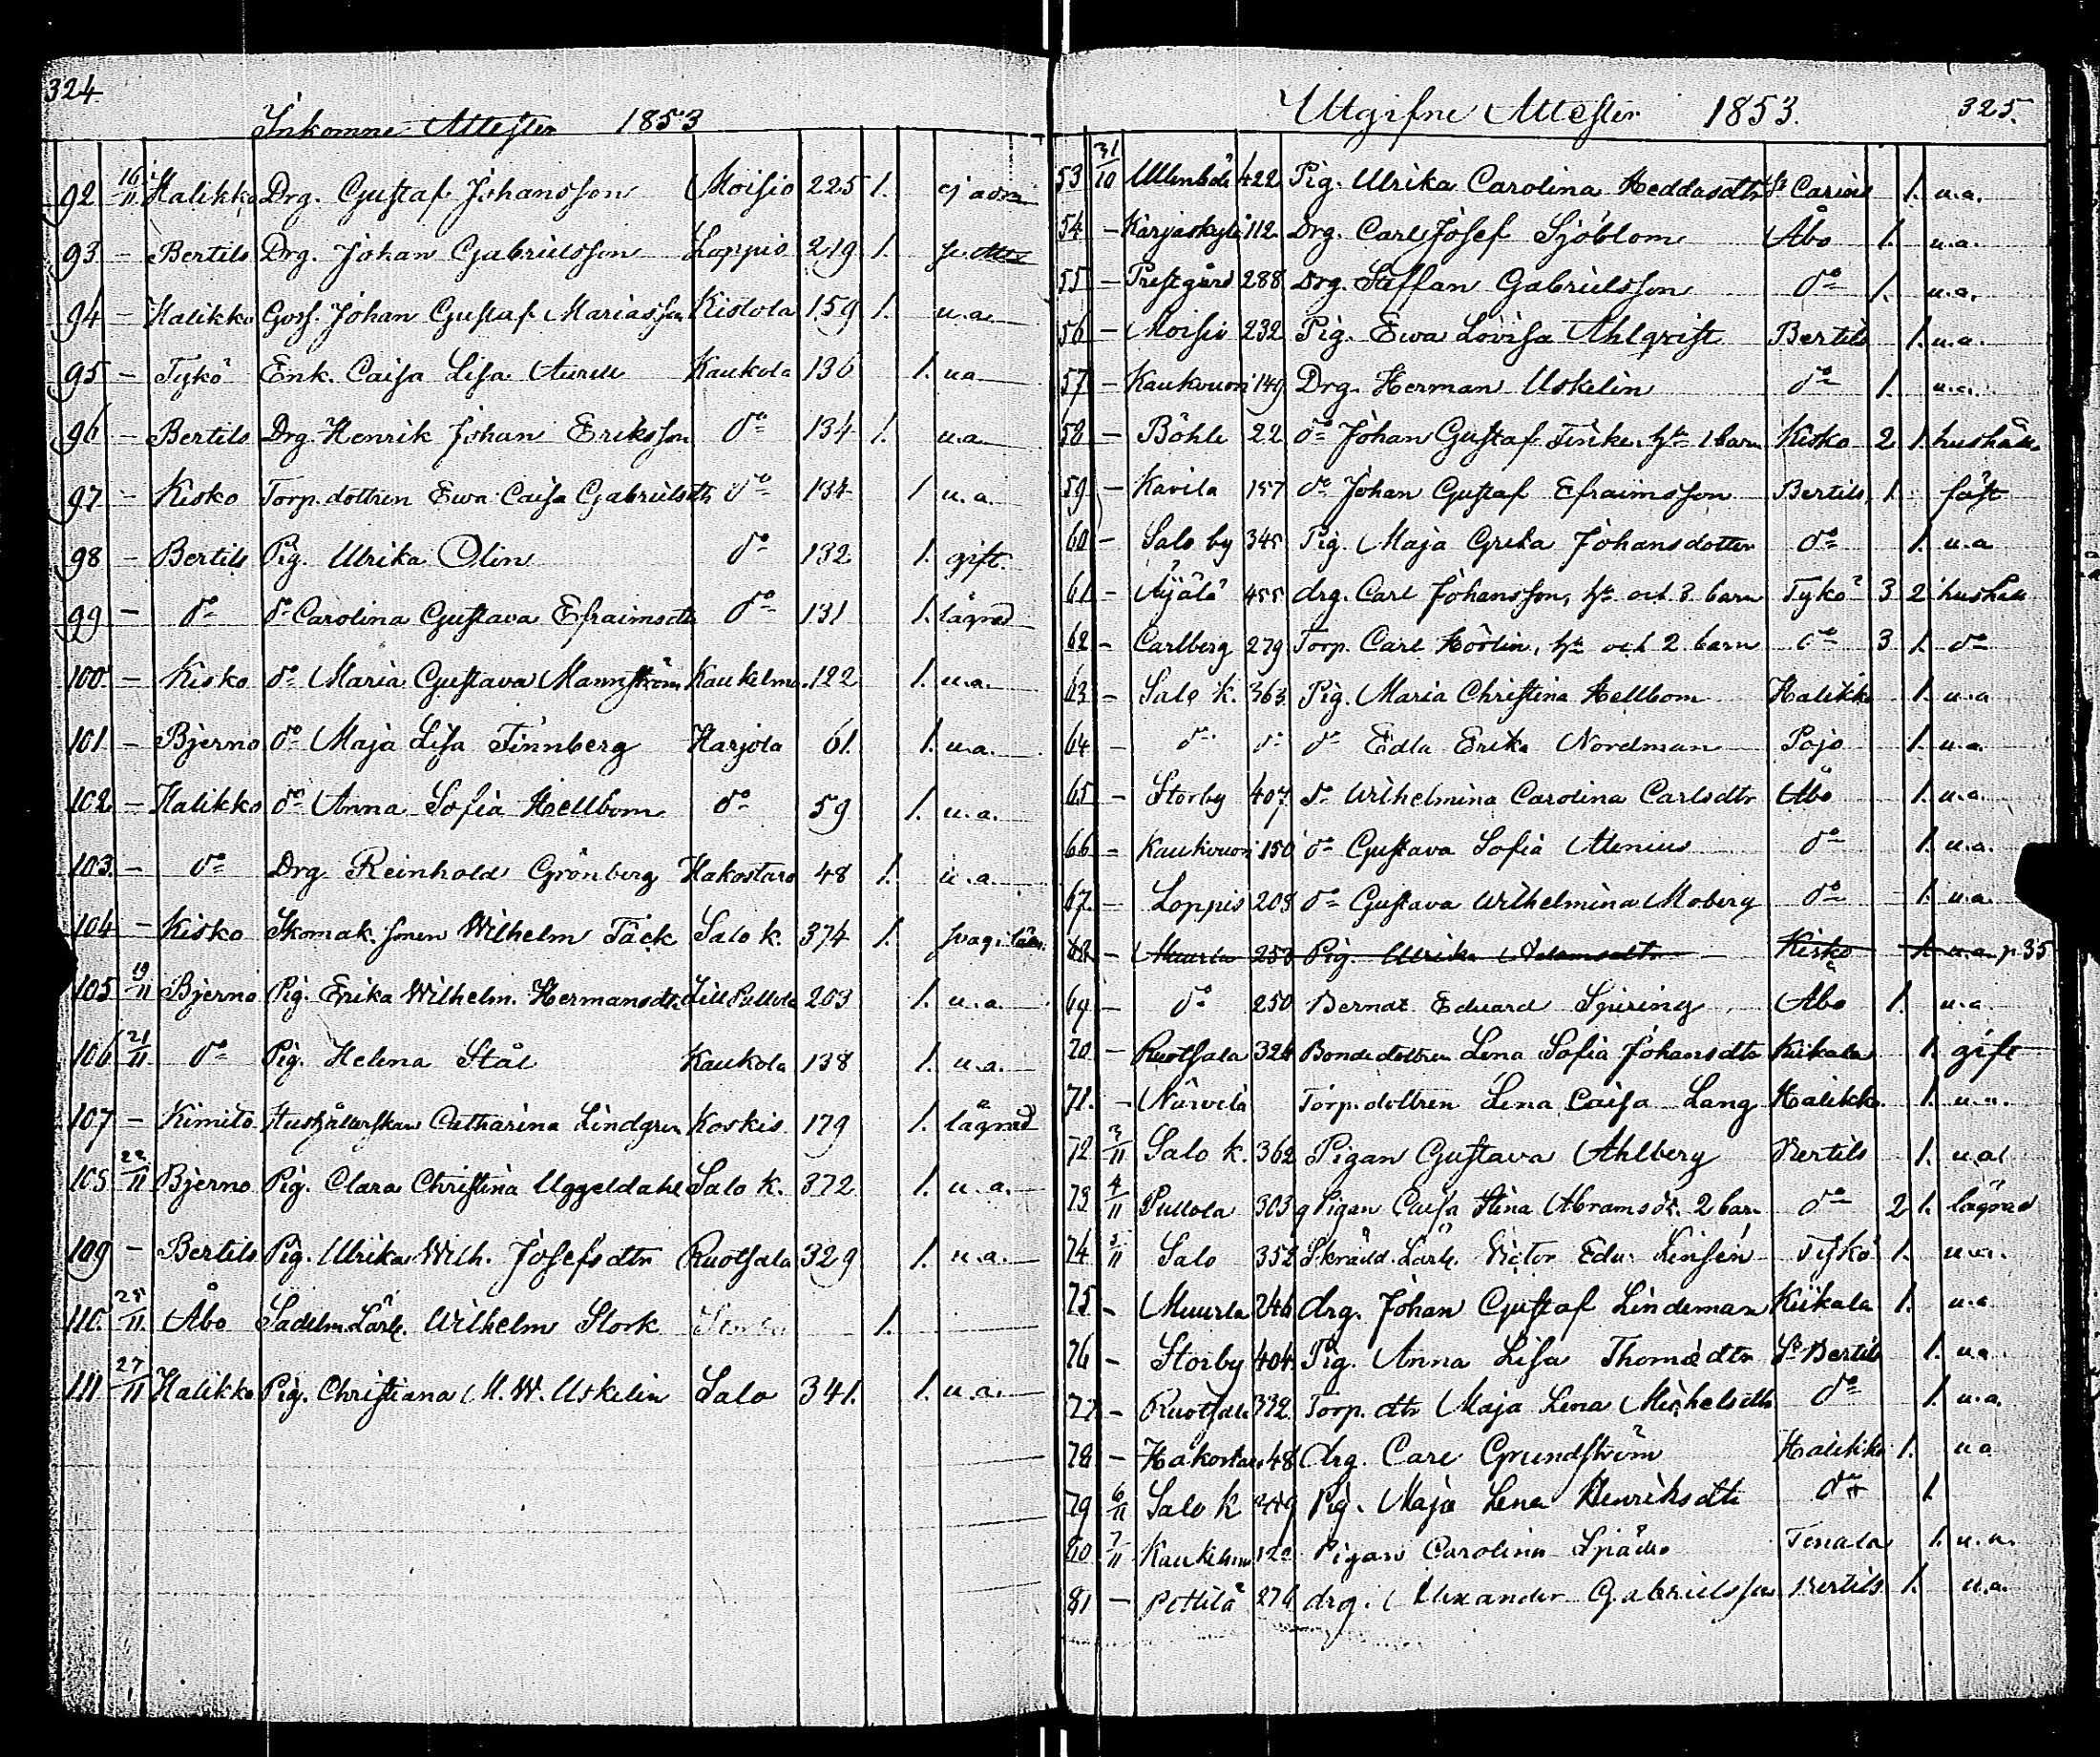 324
Inkomne Attester 1853
92 16/11 Halikko Drg. Gustaf Johansson Moisio 225 1. ej adm
93 – Bertils Drg. Johan Gabrielsson Loppis 219 1.
94 – Halikko Goss. Johan Gustaf Mariasson Kistola 159 1. u.a.
95 – Tykö Enk. Caisa Lisa Aurell Kaukola 136 1. u.a.
96 – Bertils Drg. Henrik Johan Eriksson do 134 1. u.a.
97 – Kisko Torp.dottren Ewa Caisa Gabrielsdtr do 134 1 u.a.
98 – Bertils Pig. Ulrika Olin do 132 1. gift.
99 – do do Carolina Gustava Efraimsdtr do 131 1. lägrad
100. – Kisko do Maria Gustava Mannström Kaukelma. 122 1. u.a.
101 – Bjerno do Maja Lisa Finnberg Karjola 61. 1. u.a.
102 – Halikko do Anna Sofia Hellbom do 59 1. u.a.
103. – do Drg Reinhold Grönberg Hakostaro 48 1. u.a.
104 – Kisko Skomak. sonen Wilhelm Täck Salo k. 374 1. svag i läsn.
105 19/11 Bjerno Pig. Erika Wilhelm. Hermansdtr Lill Pullola 203 1. u.a.
106 21/11 do Pig. Helena Stål Kaukola 138 1. u.a.
107 – Kimito Hushållerskan Catharina Lindgren Koskis 179 1. lägrad
108 22/11 Bjerno Pig. Clara Christina Uggeldahl Salo k. 372 1. u.a.
109 – Bertils Pig. Ulrika Wilh. Josefsdtr Ruotsala 329 1. u.a.
110. 25/11. Åbo Sadelm.Lärl. Wilhelm Stork 1.
111 27/11 Halikko Pig. Christiana M. W. Uskelin Salo 341. 1. u.a.
Utgifne Attester 1853. 325.
53 31/10 422 Pig. Ulrika Carolina Heddasdtr St Carins 1. u.a.
54 – Karjaskylä 112 Drg. Carl Josef Sjöblom Åbo 1. u.a.
55 – Prestgård 288 Drg. Staffan Gabrielsson do 1. u.a.
56 – Moisio 232 Pig. Ewa Lovisa Ahlqvist Bertils 1. u.a.
57 – Kaukvuori 149 Drg. Herman Uskelin do 1. u.a.
58 – Böhle 22 do Johan Gustaf Finke, hu 1 barn Kisko 2 1. hushåll
59 – Kavila 157 do Johan Gustaf Efraimsson Bertils 1. fäst
60 – Salo by 345 Pig. Maja Greta Johansdotter do 1. u.a
61 – Äijälä 455 drg. Carl Johansson, hu och 3 barn Tykö 3 2 hushåll
62 – Carlberg 279 Torp. Carl Hördin, hu och 2 barn do 3 1. do
63 – Salo k. 363 Pig. Maria Christina Hellbom Halikko 1. u.a
64 – do do do Edla Erika Nordman Pojo 1. u.a.
65 – Storby 407 do Wilhelmina Carolina Carlsdtr Åbo 1. u.a.
66 – Kaukvuori 150 do Gustava Sofia Alenius do 1. u.a.
67. – Loppis 208 do Gustava Wilhelmina Moberg do 1. u.a.
68 – Muurla 253 Pig. Ulrika Adamsdtr Kisko 1. u.a. p. 35
69 – do 250 Berndt Eduard Spiring Åbo 1. u.a
70 – Ruotsala 324 Bondedottren Lena Sofia Johansdtr Kiikala 1. gift
71. – Nurvila Torp.dottren Lena Caisa Lang Halikko. 1. u.a.
72 3/11 Salo k. 362 Pigan Gustava Ahlberg Bertils 1. u.a
73 4/11 Pullola 303 Pigan Caisa Stina Abramsdr. 2 barn do 2 1. lägrad
74 5/11 Salo 352 Skrädd. Lärl. Victor Edu. Linsén Tykö 1. u.a.
75 – Muurla 246 drg. Johan Gustaf Lindeman Kiikala 1. u.a
76 – Storby 404 Pig. Anna Lisa Thomædtr St Bertils 1. u.a.
77 – Ruotsala 332 Torp. dtr Maja Lena Michelsdtr do 1. u.a.
78 – Hakostaro 48 drg. Carl Grundström Halikko 1. u.a
79 6/11 Salo k Pig. Maja Lena Henriksdtr do 1.
80 7/11 Kaukelma Pigan Carolina Tenala 1. u.a.
81 – Pettilä 276 drg. Alexander Gabrielsson Bertils 1. u.a.